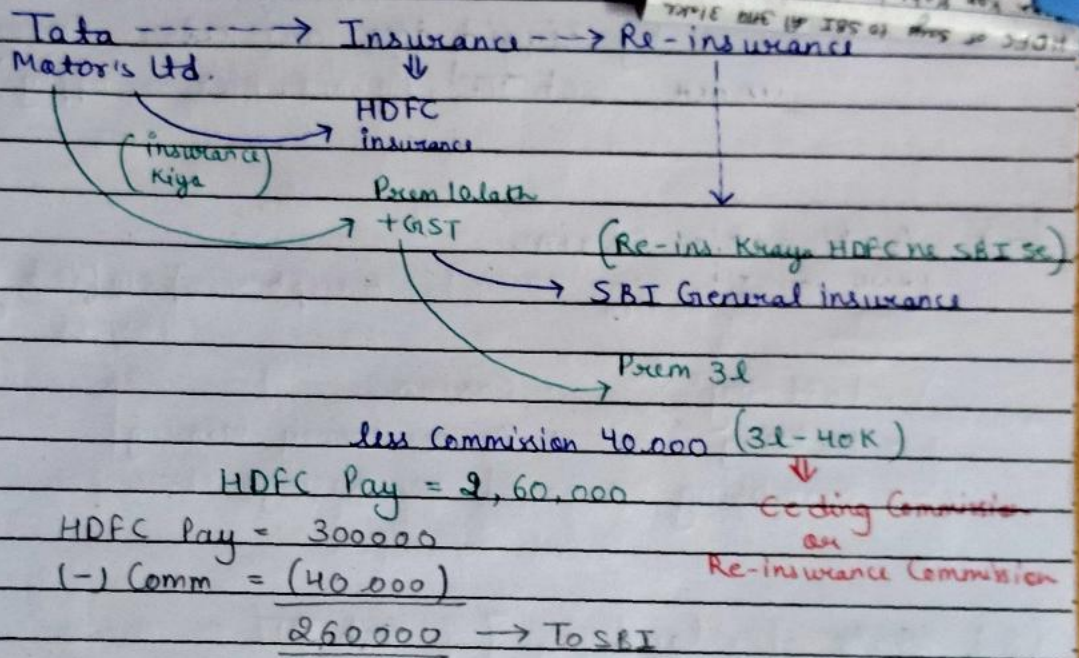 HDFC ne SBI
Tata -------> Insurance ---> Re-insurance
Mator's Ltd. ⇓
HDFC
insurance
(insurance
Kiya)
Prem 10 lakh
+GST
(Re-ins. Kraya HDFC ne SBI se)
→ SBI General insurance
Prem 3l
less Commission 40,000 (3l-40K)
⇓
HDFC Pay = 2,60,000
Ceding Commission
or
Re-insurance Commission
HDFC Pay = 300000
(-) Comm = (40,000)
260000 → To SBI